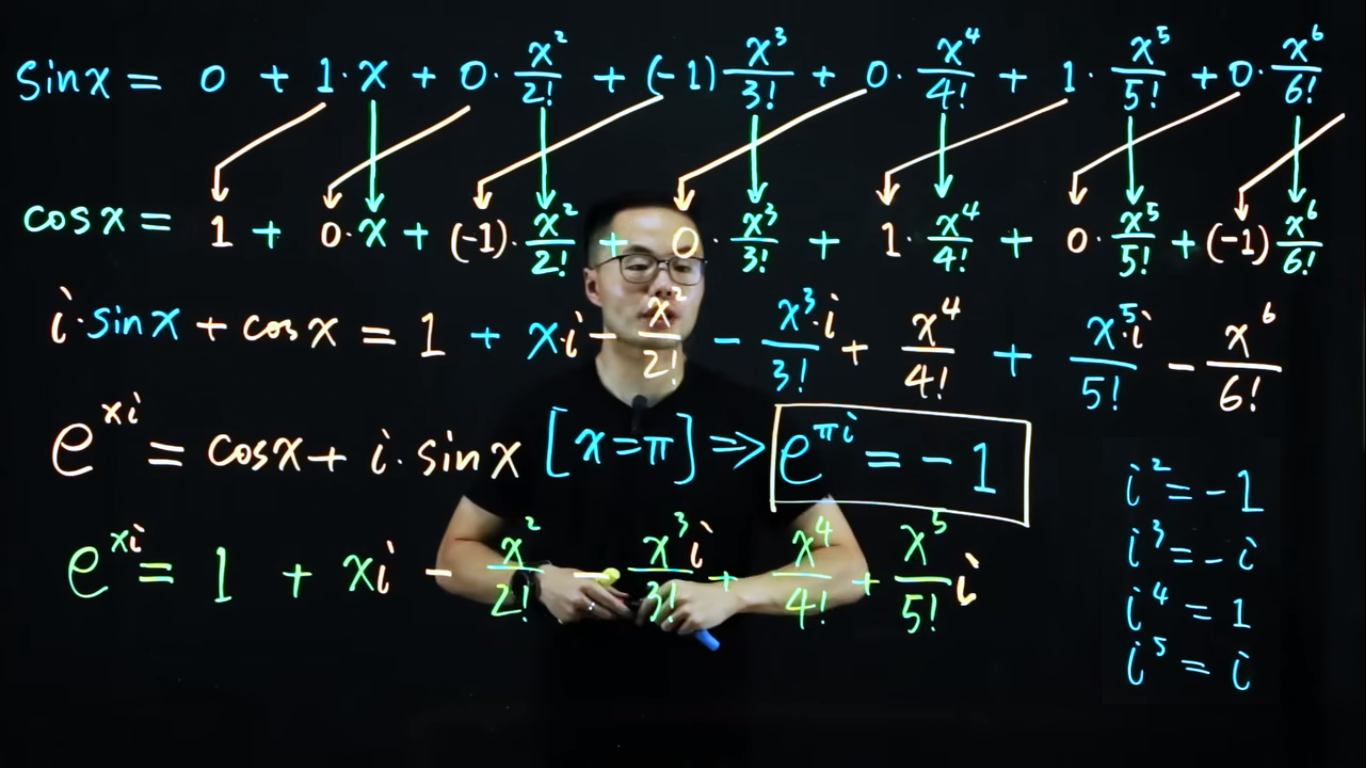 sinx = 0 + 1·x + 0·x²/2! + (-1)x³/3! + 0·x⁴/4! + 1·x⁵/5! + 0·x⁶/6!
cosx = 1 + 0·x + (-1)·x²/2! + 0·x³/3! + 1·x⁴/4! + 0·x⁵/5! + (-1)x⁶/6!
i·sinx + cosx = 1 + x·i - x²/2! - x³·i/3! + x⁴/4! + x⁵·i/5! - x⁶/6!
e^xi = cosx + i·sinx [x=π] ⇒ e^πi = -1
e^xi = 1 + xi - x²/2! - x³i/3! + x⁴/4! + x⁵/5! i
i² = -1
i³ = -i
i⁴ = 1
i⁵ = i